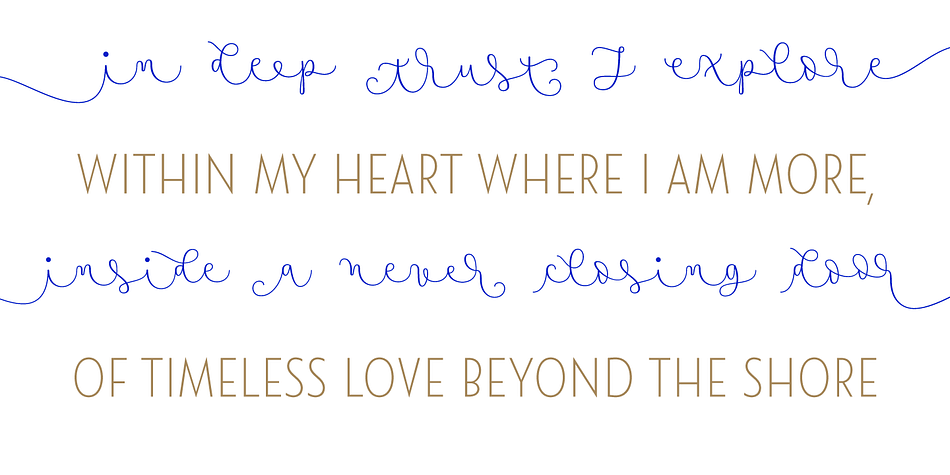 in deep trust I explore
WITHIN MY HEART WHERE I AM MORE,
inside a never closing door
OF TIMELESS LOVE BEYOND THE SHORE